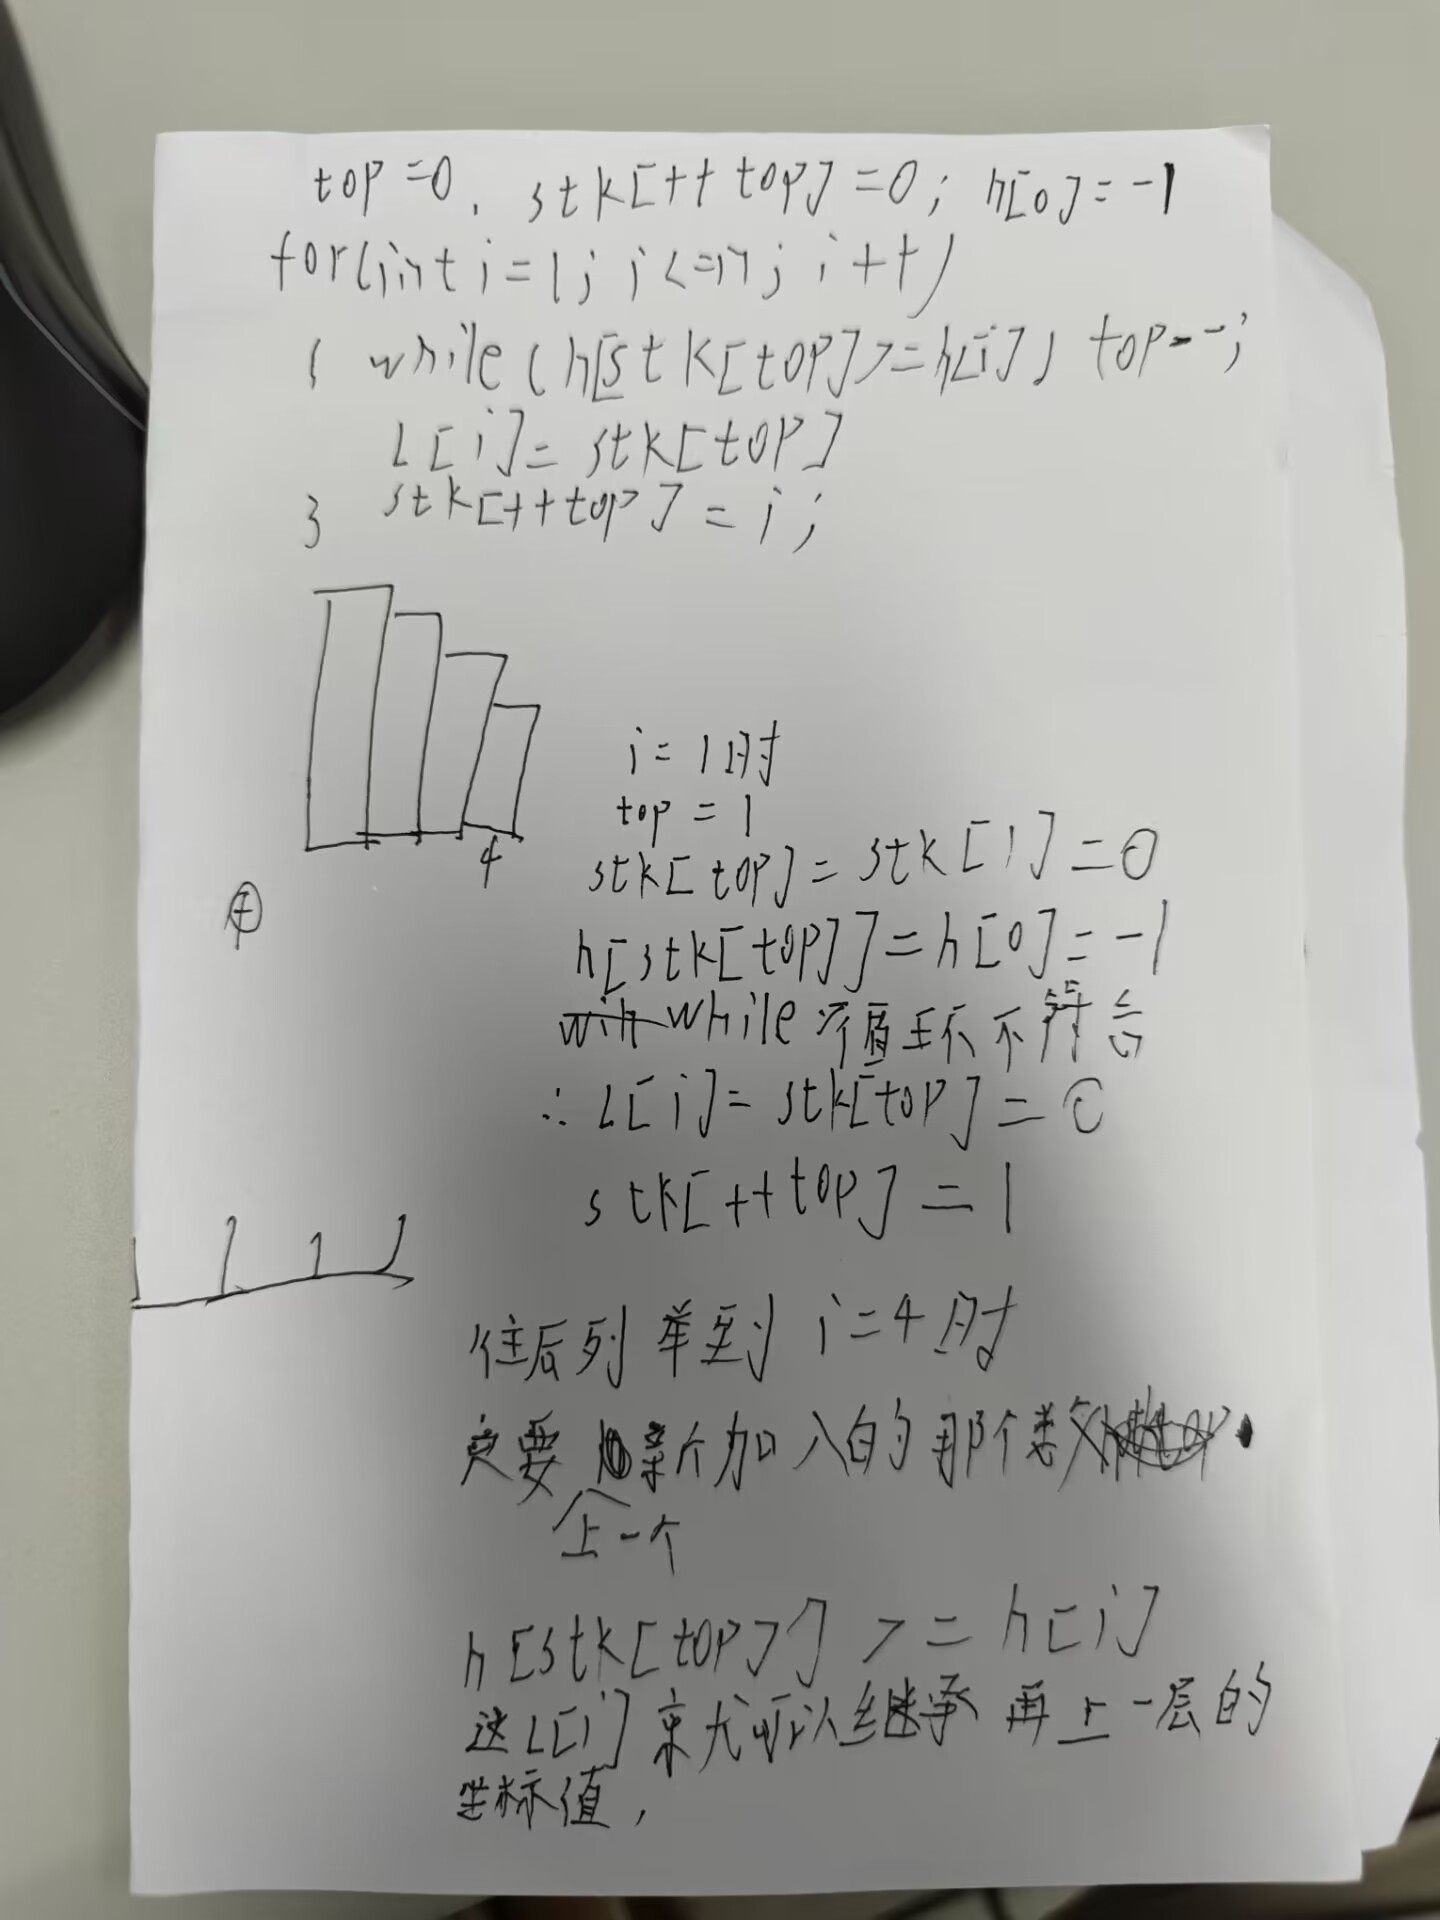 top=0, stk[++top]=0; h[0]=-1
for(int i=1; i<=n; i++)
{ while(h[stk[top]>=h[i]) top--;
L[i]=stk[top]
} stk[++top]=i;
4
i=1时
top=1
stk[top]=stk[1]=0
h[stk[top]]=h[0]=-1
while 循环不符合
∴ L[i]=stk[top]=0
stk[++top]=1
往后列举到 i=4时
只要 新加入的那个数
上一个
h[stk[top]] >= h[i]
这L[i]就可以继承再上一层的
坐标值,